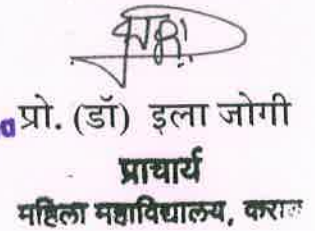 प्रो. (डॉ) इला जोगी
प्राचार्य
महिला महाविद्यालय,